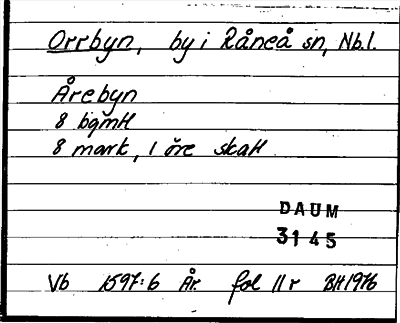 Orrbyn, by i Råneå sn, Nb.l.
Årebyn
8 bgmH
8 mark, 1 öre skatt
DAUM
3145
Vb 1597:6 År. fol 11r BH1976